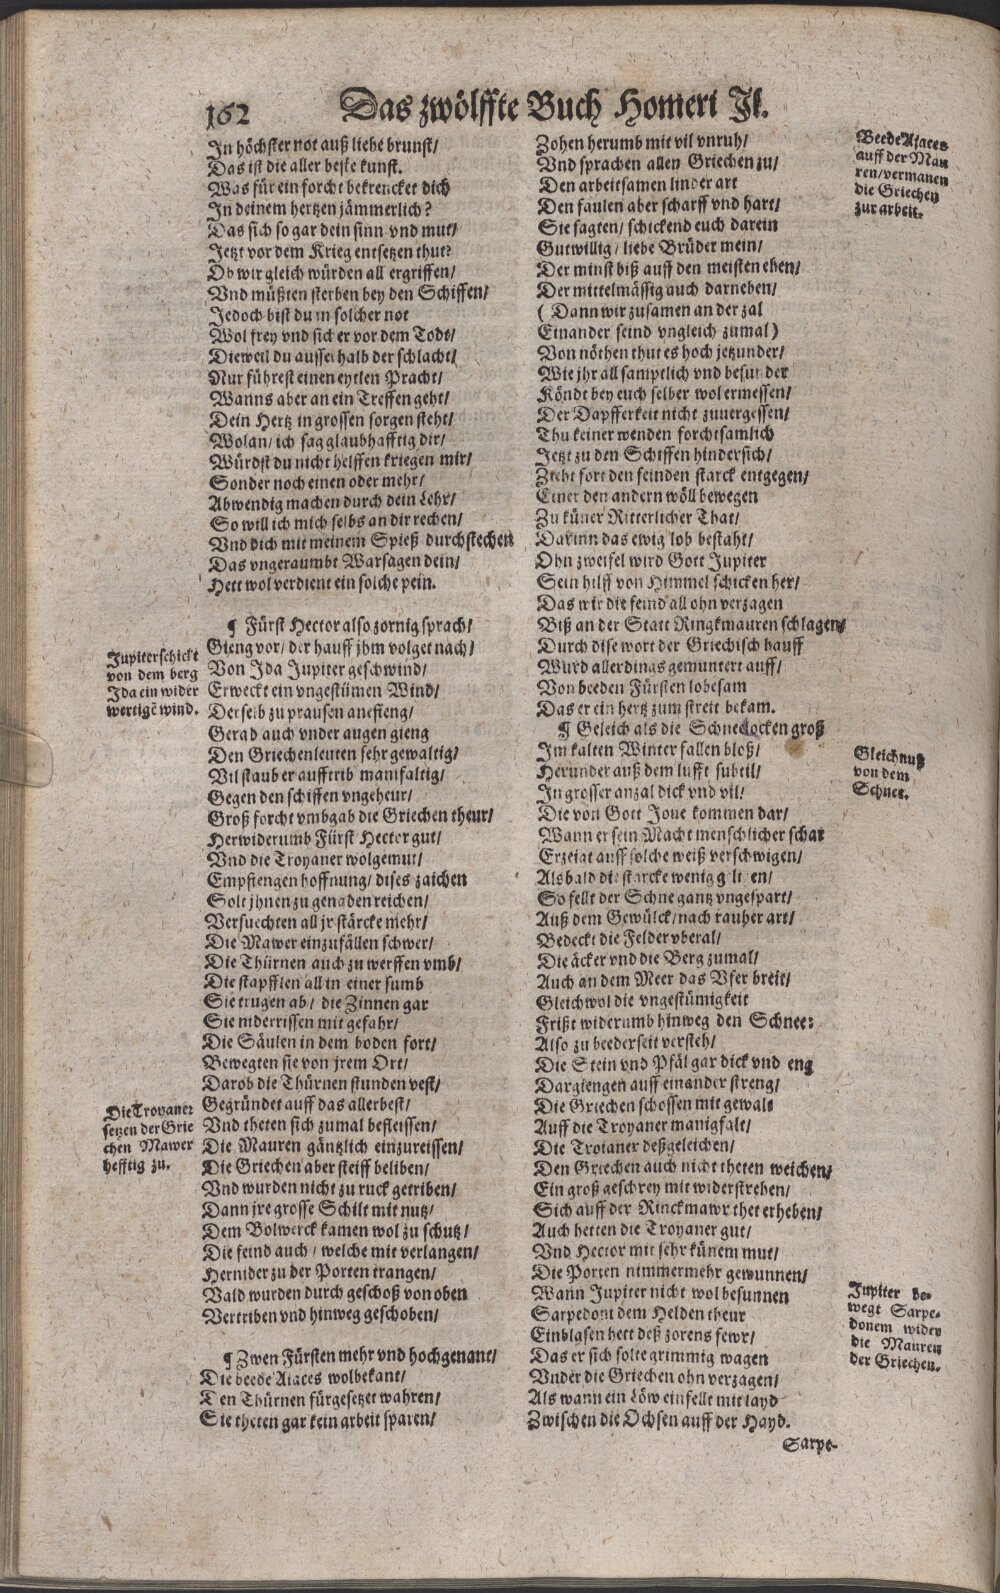 162
Das zwölffte Buch Homeri Il.
In höchster not auß liebe brunst/
Das ist die aller beste kunst.
Was für ein forcht bekrencket dich
In deinem hertzen jämmerlich?
Das sich so gar dein sinn vnd mut/
Jetzt vor dem Krieg entsetzen thut?
Ob wir gleich würden all ergriffen/
Vnd müßten sterben bey den Schiffen/
Jedoch bist du in solcher not
Wol frey vnd sicher vor dem Todt/
Dieweil du ausserhalb der schlacht/
Nur führest einen eytlen Pracht/
Wanns aber an ein Treffen geht/
Dein Hertz in grossen sorgen steht/
Wolan/ ich sag glaubhafftig dir/
Würdst du nicht helffen kriegen mir/
Sonder noch einen oder mehr/
Abwendig machen durch dein Lehr/
So will ich mich selbs an dir rechen/
Vnd dich mit meinem Spieß durchstechen
Das vngeraumbt Warsagen dein/
Hett wol verdient ein solche pein.
¶ Fürst Hector also zornig sprach/
Gieng vor/ der hauff jhm volget nach/
Jupiter schickt
von dem berg
Ida ein wider
wertigē wind.
Von Ida Jupiter geschwind/
Erweckt ein vngestümen Wind/
Derselb zu prausen aneffeng/
Gerad auch vnder augen gieng
Den Griechenleuten sehr gewaltig/
Vil staub er aufftrib manifaltig/
Gegen den schiffen vngeheur/
Groß forcht vmbgab die Griechen theur/
Herwiderumb Fürst Hector gut/
Vnd die Troyaner wolgemut/
Empfiengen hoffnung/ dises zaichen
Solt jhnen zu genaden reichen/
Versuechten all jr stärcke mehr/
Die Mawer einzufällen schwer/
Die Thürnen auch zu werffen vmb/
Die stapfflen all in einer sumb
Sie trugen ab/ die Zinnen gar
Sie niderrissen mit gefahr/
Die Säulen in dem boden fort/
Bewegten sie von jrem Ort/
Darob die Thürnen stunden vest/
Gegründet auff das allerbest/
Die Troyaner
setzen der Grie
chen Mawer
hefftig zu.
Vnd theten sich zumal befleissen/
Die Mauren gäntzlich einzureissen/
Die Griechen aber steiff beliben/
Vnd wurden nicht zu ruck getriben/
Dann jre grosse Schilt mit nutz/
Dem Bolwerck kamen wol zu schutz/
Die feind auch/ welche mit verlangen/
Hernider zu der Porten trangen/
Bald wurden durch geschoß von oben
Vertriben vnd hinweg geschoben/
¶ Zwen Fürsten mehr vnd hochgenant/
Die beede Aiaces wolbekant/
Den Thürnen fürgesetzet wahren/
Sie theten gar kein arbeit sparen/
Zohen herumb mit vil vnruh/
Vnd sprachen allen Griechen zu/
Den arbeitsamen linder art
Den faulen aber scharff vnd hart/
Beede Aiaces
auff der Mau
ren/ vermanen
die Griechen
zur arbeit.
Sie sagten/ schickend euch darein
Gutwillig/ liebe Brüder mein/
Der minst biß auff den meisten eben/
Der mittelmässig auch darneben/
( Dann wir zusamen an der zal
Einander seind vngleich zumal)
Von nöthen thut es hoch jetzunder/
Wie jhr all samptlich vnd besunder
Köndt bey euch selber wol ermessen/
Der Dapfferkeit nicht zuuergessen/
Thu keiner wenden forchtsamlich
Jetzt zu den Schiffen hindersich/
Zieht fort den feinden starck entgegen/
Einer den andern wöll bewegen
Zu küner Ritterlicher That/
Darinn das ewig lob bestaht/
Ohn zweifel wird Gott Jupiter
Sein hilff von Himmel schicken her/
Das wir die feind all ohn verzagen
Biß an der Statt Ringkmauren schlagen/
Durch dise wort der Griechisch hauff
Wurd allerdings gemuntert auff/
Von beeden Fürsten lobesam
Das er ein hertz zum streit bekam.
¶ Geleich als die Schneelocken groß
Im kalten Winter fallen bloß/
Herunder auß dem lufft subtil/
In grosser anzal dick vnd vil/
Gleichnuß
von dem
Schnee.
Die von Gott Joue kommen dar/
Wann er sein Macht menschlicher schar
Erzeigt auff solche weiß verschwigen/
Als bald die starcke wenig
So fellt der Schne gantz vngespart/
Auß dem Gewülck/ nach rauher art/
Bedeckt die Felder vberal/
Die äcker vnd die Berg zumal/
Auch an dem Meer das Vfer breit/
Gleichwol die vngestümigkeit
Frißt widerumb hinweg den Schnee:
Also zu beederseit versteh/
Die Stein vnd Pfäl gar dick vnd eng
Dargiengen auff einander streng/
Die Griechen schossen mit gewalt
Auff die Troyaner manigfalt/
Die Troianer deßgeleichen/
Den Griechen auch nicht theten weichen/
Ein groß geschrey mit widerstreben/
Sich auff der Rinckmawr thet erheben/
Auch hetten die Troyaner gut/
Vnd Hector mit sehr künem mut/
Die Porten nimmermehr gewunnen/
Wann Jupiter nicht wol besunnen
Sarpedont dem Helden theur
Einblasen hett deß zorens fewr/
Jupiter be-
wegt Sarpe-
donem wider
die Mauren
der Griechen.
Das er sich solte grimmig wagen
Vnder die Griechen ohn verzagen/
Als wann ein Löw einfellt mit layd
Zwischen die Ochsen auff der Hayd.
Sarpe-